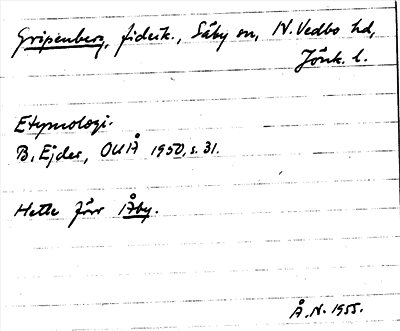 Gripenberg, fideik., Säby sn, N. Vedbo hd,
Jönk. l.
Etymologi.
B. Ejder, OUÅ 1950, s. 31.
Hette förr Åby.
Å. N. 1955.